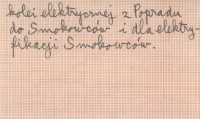 kolei elektrycznej z Popradu
do Smokowców i dla elektry-
fikacji Smokowców.